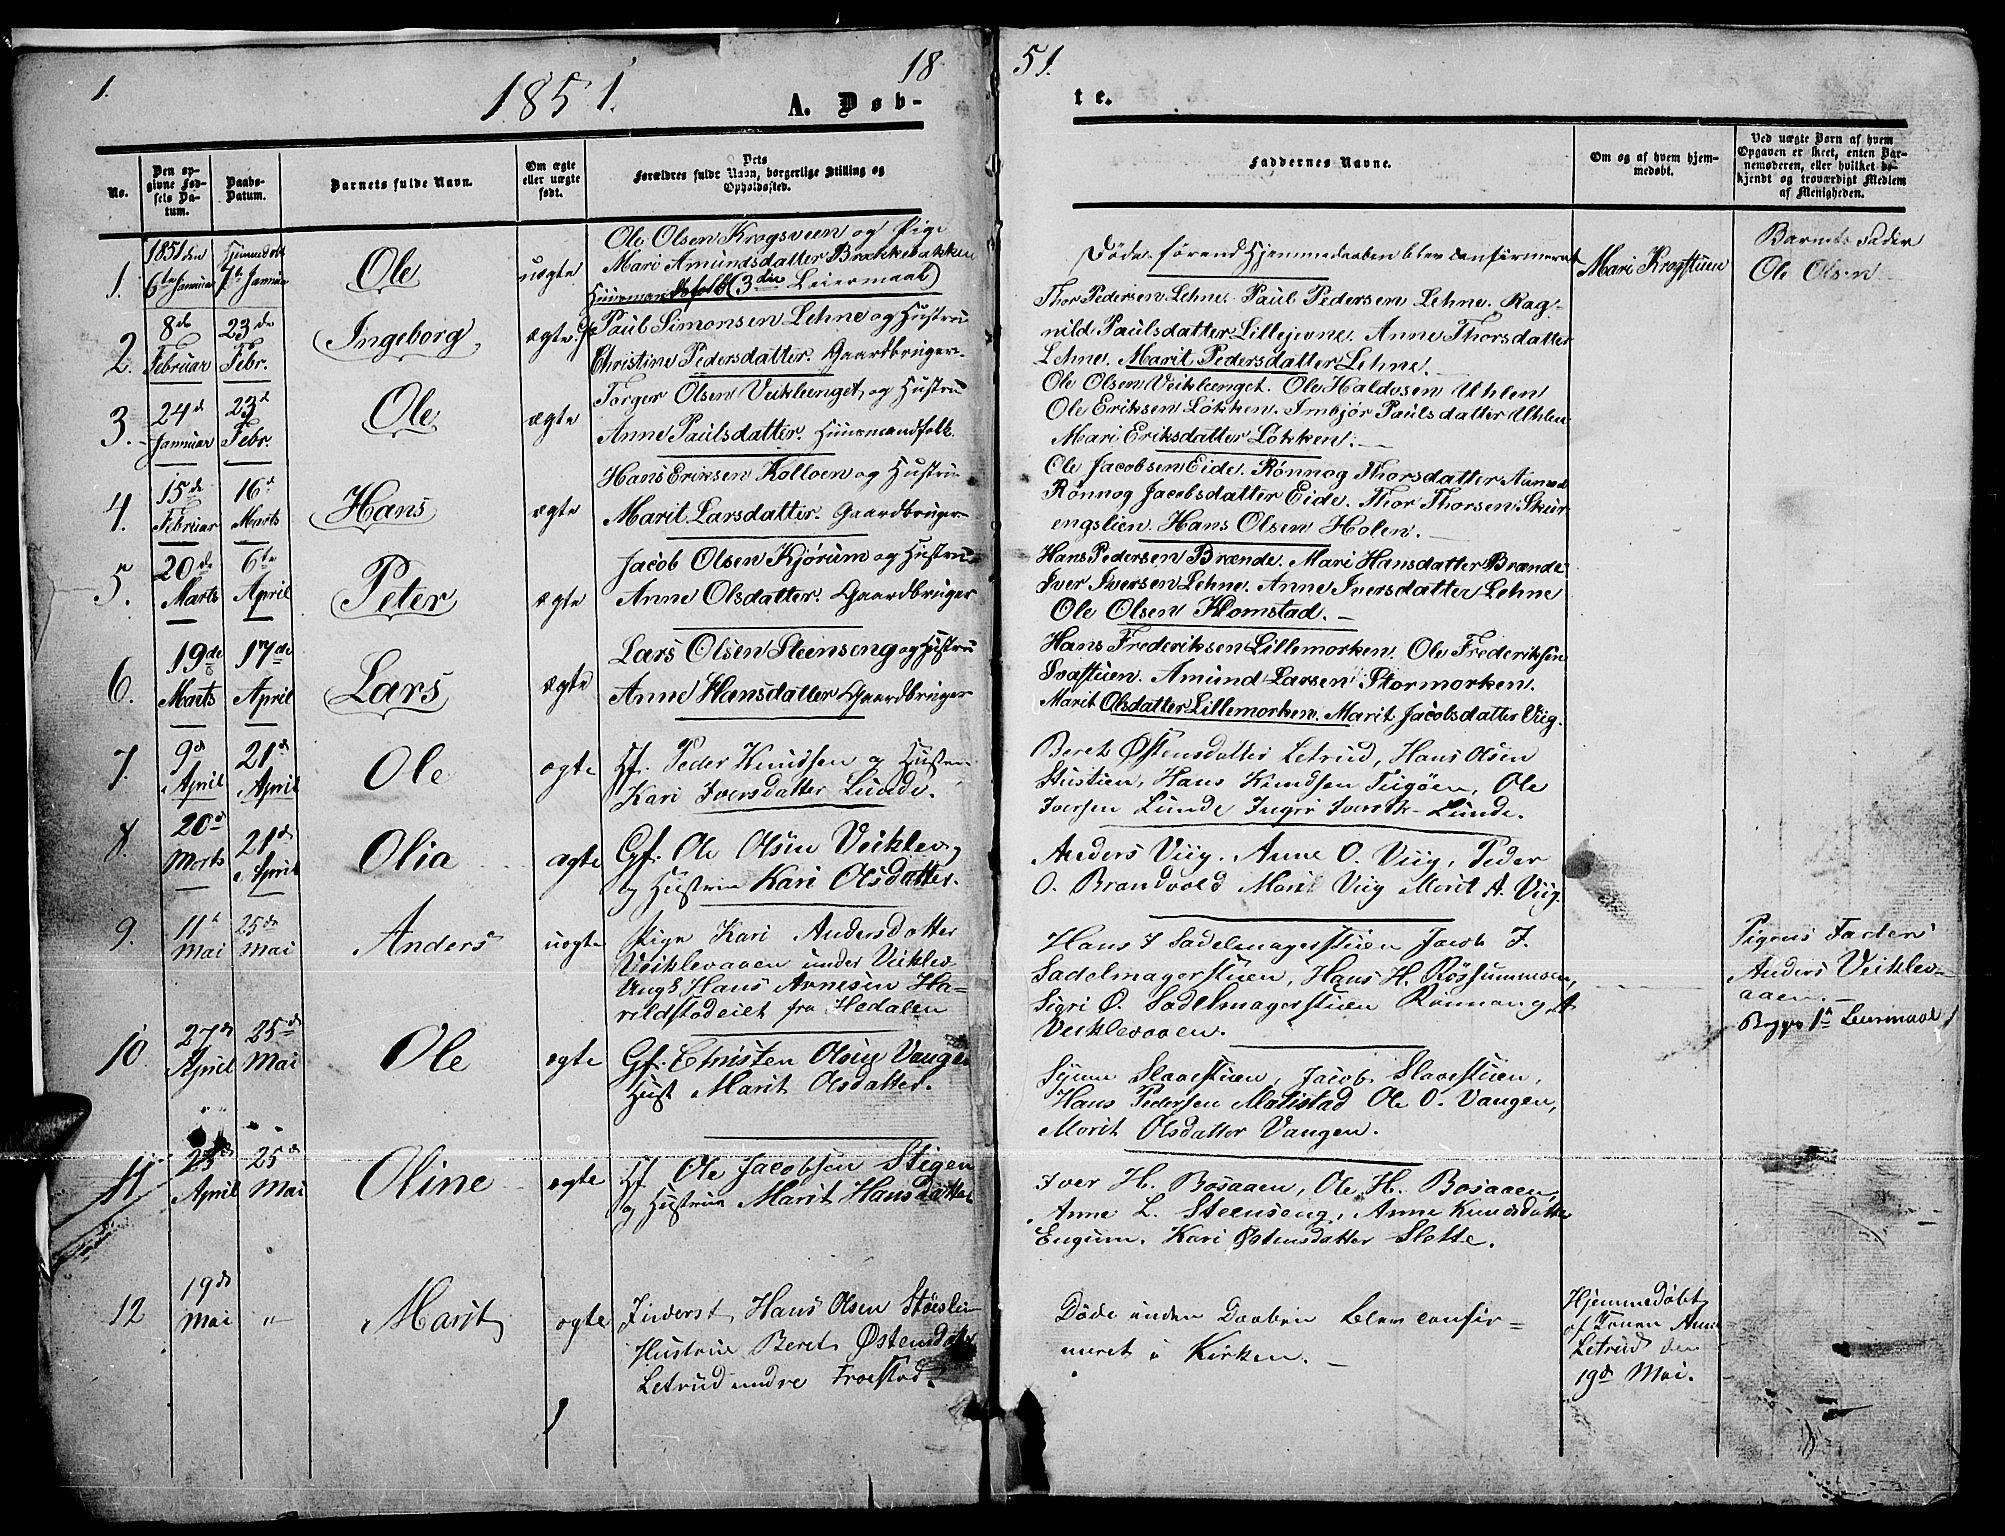 1.
1851.
18
51.
A. Døb-
te.
No.
Den op-
givne Fød-
sels Da-
tum.
Daabs-
Datum.
Barnets fulde Navn.
Om ægte
eller uægte
født.
Dets
Forældres fulde Navn, borgerlige Stilling og
Opholdssted.
Faddernes Navne.
Om og af hvem hjem-
medøbt.
Ved uægte Børn af hvem
Opgaven er skeet, enten Bar-
nemoderen, eller hvilket be-
kjendt og troværdigt Medlem
af Menigheden.
1.
1851 den
6te Januar
Hjemmedøbt
7de Januar
Ole
uægte
Ole Olsen Krogsveen og Pige
Mari Amundsdatter Brækkebakken
Huusmandsfolk (3die Leiermaal)
Døde førend Hjemmedaaben blev confirmeret
Mari Krogstuen
Barnets Fader
Ole Olsen
2.
8de
Februar
23de
Febr.
Ingeborg
ægte
Paul Simonsen Lehne og Hustru
Christine Pedersdatter. Gaardbruger
Thor Pedersen Lehne. Paul Pedersen Lehne. Rag-
nild Paulsdatter Lillejevne. Anne Thorsdatter
Lehne. Marit Pedersdatter Lehne.
3.
24d
Januar
23d
Febr.
Ole
ægte
Torger Olsen Veiklænget og Hustru
Anne Paulsdatter. Huusmandfolk.
Ole Olsen Veiklænget. Ole Haldosen Uhlen
Ole Eriksen Løkken. Imbjør Paulsdatter Uhlen
Mari Eriksdatter Løkken.
4.
15de
Februar
16d
Marts
Hans
ægte
Hans Eriksen Kolloen og Hustru
Marit Larsdatter. Gaardbruger
Ole Jacobsen Eide. Rønnog Thorsdatter
Rønnog Jacobsdatter Eide. Thor Thorsen Skur-
engslien. Hans Olsen Holen.
5.
20de
Marts
6te
April
Peter
ægte
Jacob Olsen Kjørum og Hustru
Anne Olsdatter. Gaardbruger
Hans Pedersen Brænde. Mari Hansdatter Brænde
Iver Iversen Lehne. Anne Iversdatter Lehne
Ole Olsen Klomstad.
6.
19de
Marts
17de
April
Lars
ægte
Lars Olsen Steenseng og Hustru
Anne Hansdatter Gaardbruger
Hans Frederiksen Lillemorken. Ole Frederiksen
Svastuen. Amund Larsen Stormorken.
Marit Olsdatter Lillemorken. Marit Jacobsdatter Viig.
7.
9d
April
21d
April
Ole
ægte
Hf. Peder Knudsen og Hustru
Kari Iversdatter Lunde.
Beret Østensdatter Letrud, Hans Olsen
Stustuen, Hans Knudsen Tugøen, Ole
Iversen Lunde Inger Iversd. Lunde.
8.
20d
Marts
21d
April
Olia
ægte
Gf. Ole Olsen Veiklev
og Hustru Kari Olsdatter.
Anders Viig. Anne O. Viig, Peder
O. Brandvold Marit Viig Marit A. Viig.
9.
11t
Mai
25de
Mai
Anders
uægte
Pige Kari Andersdatter
Veiklevaaen under Veiklev
Ungk Hans Arnesen Ha-
rildstadeiet fra Hedalen
Hans J Sadelmagerstuen Jacob J.
Sadelmagerstuen, Hans H. Røssummoen,
Sigri O. Sadelmagerstuen Rønnaug A
Veiklevaaen.
Pigens Fader
Anders Veiklev-
aaen.
Begges 1te Leiermaal
10.
27d
April
25de
Mai
Ole
ægte
Gf. Christen Olsen Vangen
Hust Marit Olsdatter.
Synne Slavestuen, Jacob Slavestuen,
Hans Pedersen Matistad Ole O. Vangen,
Marit Olsdatter Vangen.
11
25d
April
25d
Mai
Oline
ægte
Hf. Ole Jacobsen Stigen
og Hustru Marit Hansdatter
Iver H. Bosaaen, Ole H. Bosaaen,
Anne L. Steenseng, Anne Knudsdatter
Engum. Kari Østensdatter Slette.
12
19de
Mai
"
Marit
ægte
Inderst Hans Olsen
Hustrue Beret Østensdatter
Letrud undre Froestad.
Døde under Daaben blev confir=
meret i Kirken.
Hjemmedøbt
af Konen Anne
Letrud den
19d Mai.
1